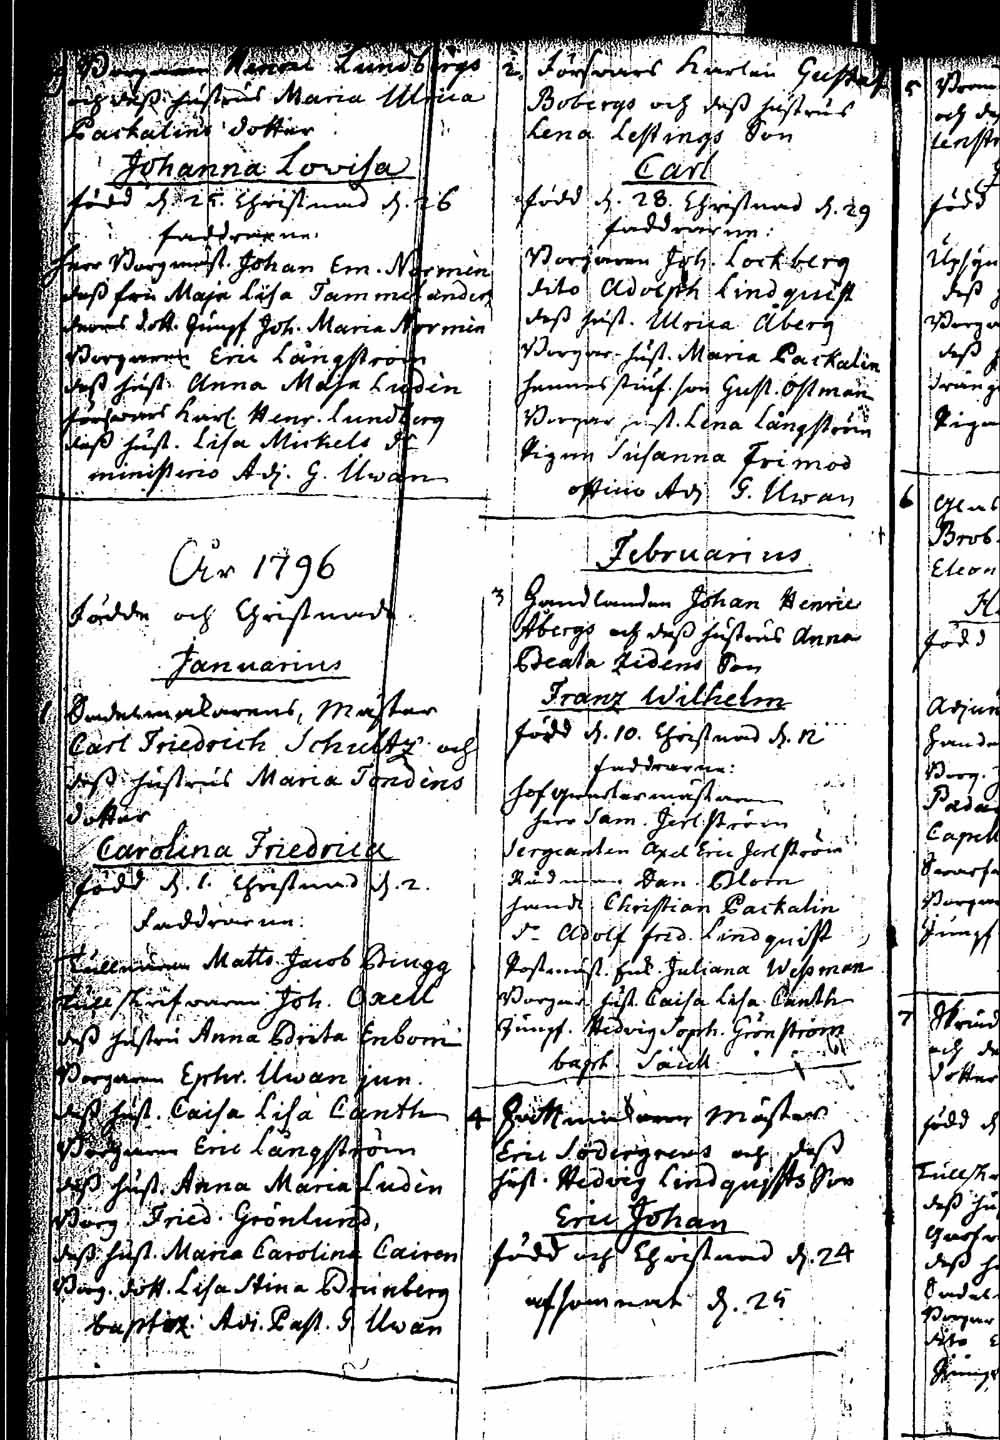 Borgaren Henric Lundbergs
och dess hustrus Maria Ulrica
Packalins dotter
Johanna Lovisa
född d. 25. Christnad d. 26
faddrarne:
Herr Borgmäst. Johan Em. Normén
dess fru Maja Lisa Tammelander
deras dott. Jungf. Joh. Maria Normén
Borgaren Eric Långström
dess hust. Anna Maja Ludén
försvars Karl Henr. Lundberg
dess hust. Lisa Michels dr
ministerio Adj. G. Uwan
År 1796
Födde och Christnade
Januarius
1 Sadelmakarens, Mäster
Carl Friedrich Schultz och
dess hustrus Maria Tondins
dotter
Carolina Friedrica
född d. 1. Christnad d. 2.
Faddrarne:
Tullnären Matts. Jacob Brugg
Tullskrifvaren Joh. Oxell
dess hustru Anna Brita Enbom
Borgaren Ephr. Uwan jun.
dess hust. Caisa Lisa Canth
Borgaren Eric Långström
dess hust. Anna Maria Ludén
Borg. Fried. Grönlund,
dess hust. Maria Carolina Cairen
Borg. dott. Lisa Stina Brunberg
baptiz. Adj. Past. G. Uwan
2. Försvars Karlen Gustaf
Bobergs och dess hustrus
Lena Lestings Son
Carl
född d. 28. Christnad d. 29
faddrarne:
Borgaren Joh. Lockberg
dito Adolph Lindquist
dess hust. Ulrica Åberg
Borgar. hust. Maria Packalin
hennes stiuf son Gust. Östman
Borgar hust. Lena Långström
Pigan Susanna Frimod
Adj G. Uwan
Februarius
3 Handlanden Johan Henric
Åbergs och dess hustrus Anna
Beata Zidens Son
Franz Wilhelm
född d. 10. Christnad d. 12
faddrarne:
herr Sam. Jerlström
Sergeanten Axel Eric Jerlström
Rådman Dan. Blom
handl. Christian Packalin
do Adolf Fred. Lindquist
Postmäst. Enk. Juliana Wesman
Borgar hust. Caisa Lisa Canth
Jungf. Hedvig Soph. Grönström
bapt.
4 Mäster
Eric Södergrens och dess
hust. Hedvig Lindquists Son
Eric Johan
född och Christnad d. 24
afsomnat d. 25
5
och
född
6
Brob
Eleon
född
Adjun
Borg.
Capell
Borgar
Jungf
7
och
dotter
född d
Tullskr
dess hu
dess h
Borgar
dito